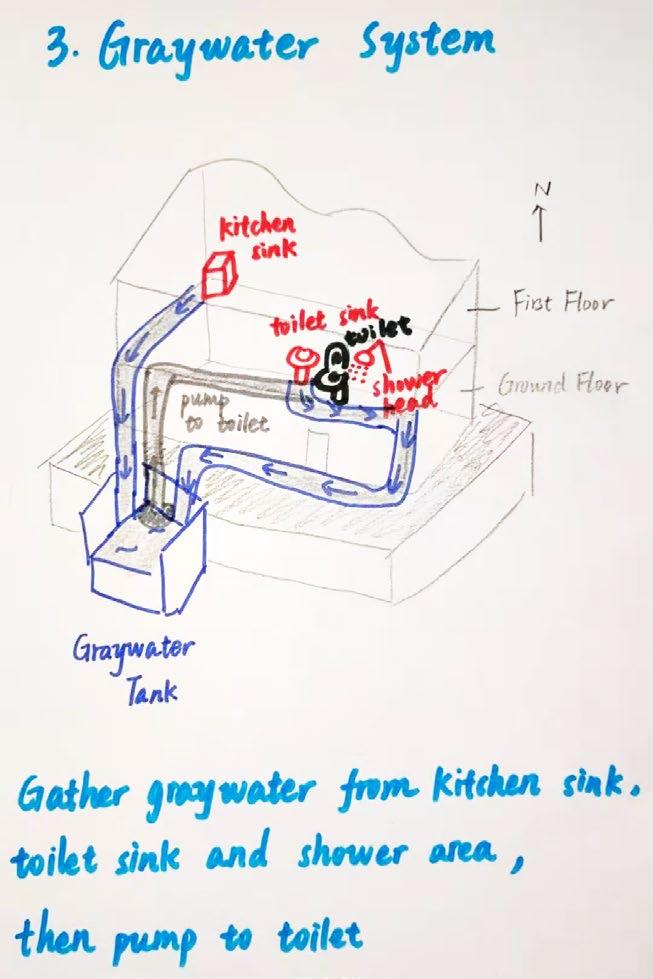 3. Graywater System
N
kitchen
sink
First Floor
toilet sink
toilet
shower
head
Ground Floor
pump
to toilet
Graywater
Tank
Gather graywater from kitchen sink.
toilet sink and shower area,
then pump to toilet